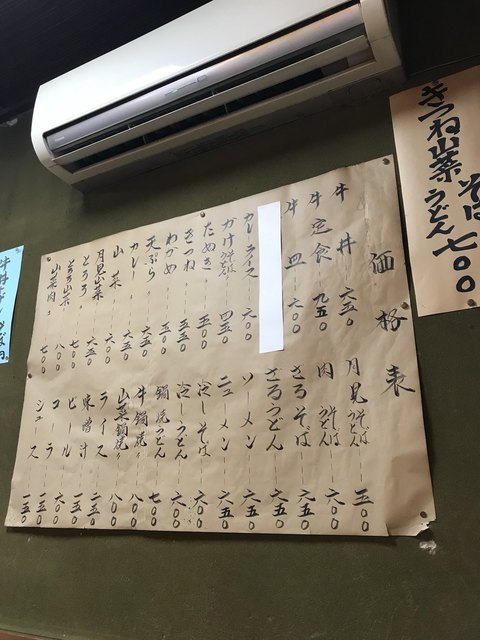 価格表
牛丼 六五〇
牛定食 九五〇
牛皿 六〇〇
カレーライス 六〇〇
かけそばうどん 四五〇
たぬき〃 五〇〇
きつね〃 五五〇
わかめ〃 五五〇
天ぷら〃 六五〇
カレー〃 六五〇
山菜〃 六〇〇
月見山菜〃 六五〇
とろろ〃 七〇〇
とろろ山菜〃 八〇〇
山菜肉〃 七〇〇
月見そばうどん 五〇〇
肉そばうどん 六〇〇
ざるそば 六五〇
ざるうどん 六五〇
ソーメン 六五〇
ニューメン 六五〇
冷しそば 六〇〇
冷しうどん 六〇〇
鍋焼うどん 七〇〇
牛鍋焼〃 八〇〇
山菜鍋焼〃 八〇〇
ライス 二五〇
味噌汁 一五〇
ビール 六〇〇
コーラ 一五〇
ジュース 一五〇
きつね山菜そばうどん 七〇〇